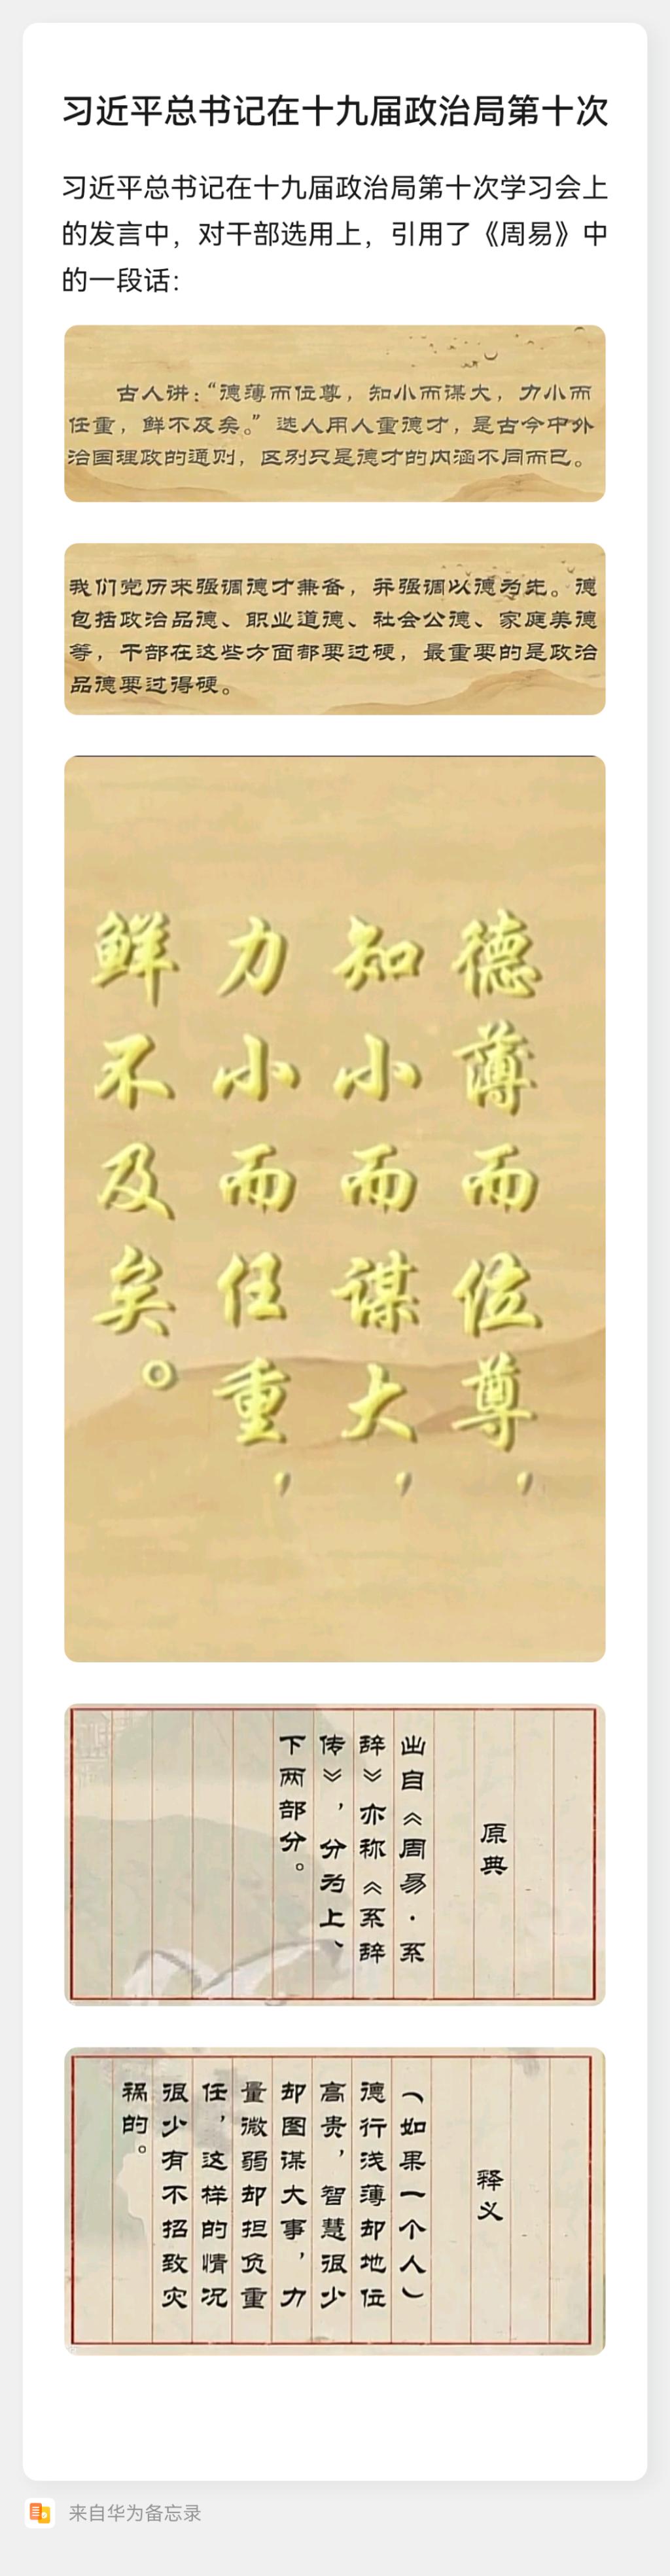 习近平总书记在十九届政治局第十次
习近平总书记在十九届政治局第十次学习会上
的发言中，对干部选用上，引用了《周易》中
的一段话：
古人讲：“德薄而位尊，知小而谋大，力小而
任重，鲜不及矣。”选人用人重德才，是古今中外
治国理政的通则，区别只是德才的内涵不同而已。
我们党历来强调德才兼备，并强调以德为先。德
包括政治品德、职业道德、社会公德、家庭美德
等，干部在这些方面都要过硬，最重要的是政治
品德要过得硬。
德薄而位尊，
知小而谋大，
力小而任重，
鲜不及矣。
原典
出自《周易·系
辞》亦称《系辞
传》，分为上、
下两部分。
释义
（如果一个人）
德行浅薄却地位
高贵，智慧很少
却图谋大事，力
量微弱却担负重
任，这样的情况
很少有不招致灾
祸的。
来自华为备忘录